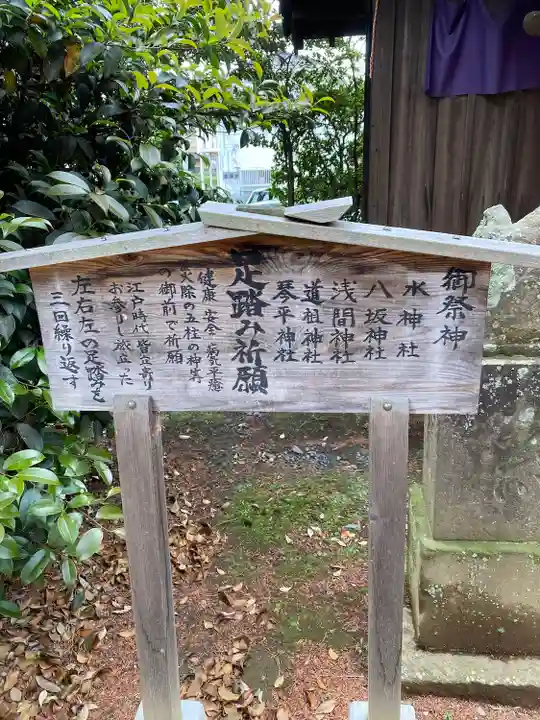 御祭神
水神社
八坂神社
浅間神社
道祖神社
琴平神社
足踏み祈願
健康 安全 病気平癒
火除の五柱の神等
の御前で祈願
江戸時代 皆立寄り
お参りし旅立った
左右左の足踏みを
三回繰り返す